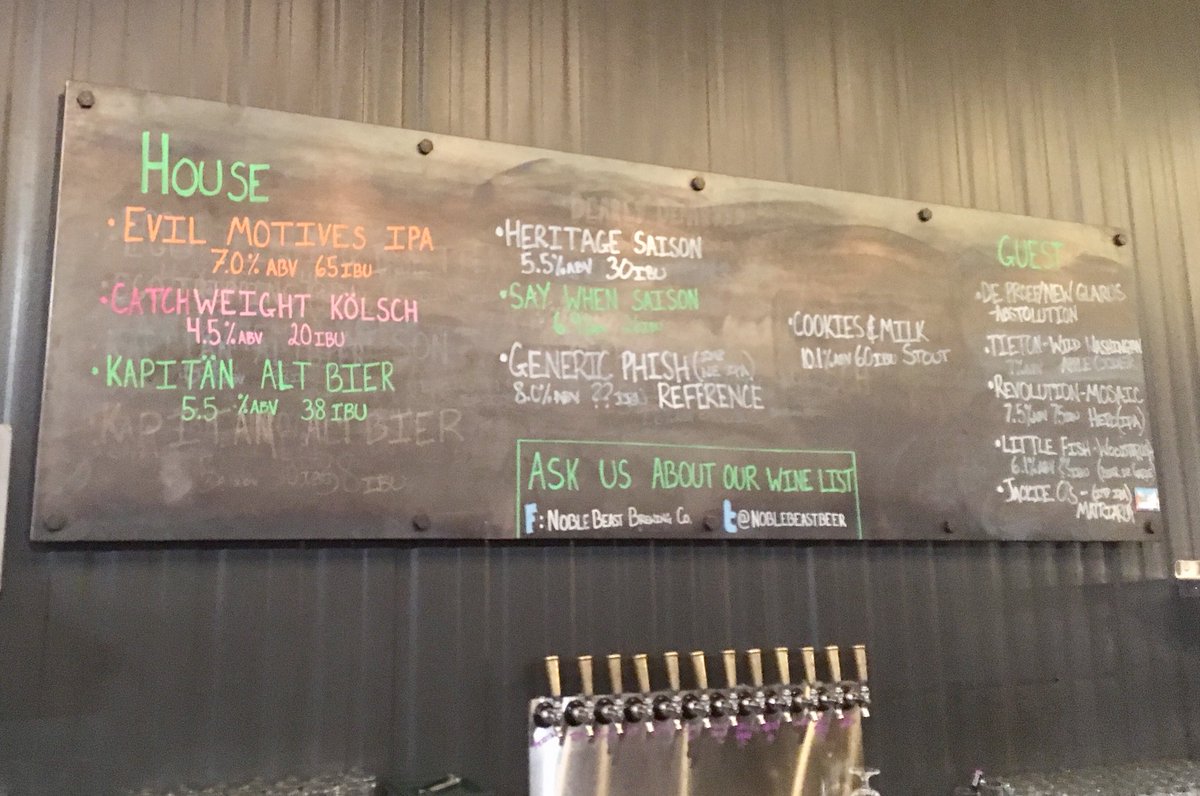 HOUSE
• EVIL MOTIVES IPA
7.0% ABV 65 IBU
• CATCHWEIGHT KÖLSCH
4.5% ABV 20 IBU
• KAPITÄN ALT BIER
5.5 % ABV 38 IBU
KAPITÄN ALT BIER
• HERITAGE SAISON
5.5% ABV 30 IBU
• SAY WHEN SAISON
• GENERIC PHISH
8.0% ABV ?? IBU REFERENCE
• COOKIES & MILK
10.1% ABV 60 IBU STOUT
ASK US ABOUT OUR WINE LIST
F: NOBLE BEAST BREWING CO. t @NOBLEBEASTBEER
GUEST
• DE PROEF/NEW GLARUS
• TIETON-WILD WASHINGTON
APPLE CIDER
• REVOLUTION-MOSAIC
7.5% ABV
• LITTLE FISH-
• JACKIE O's -
MATRIARCH